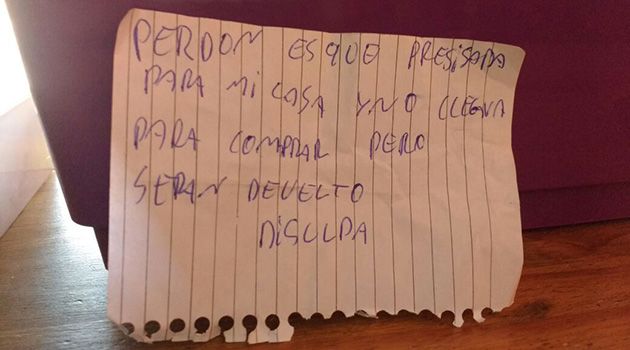 PERDON ES QUE PRESISABA
PARA MI CASA Y NO LLEGAVA
PARA COMPRAR PERO
SERAN DEVELTO
DISULPA